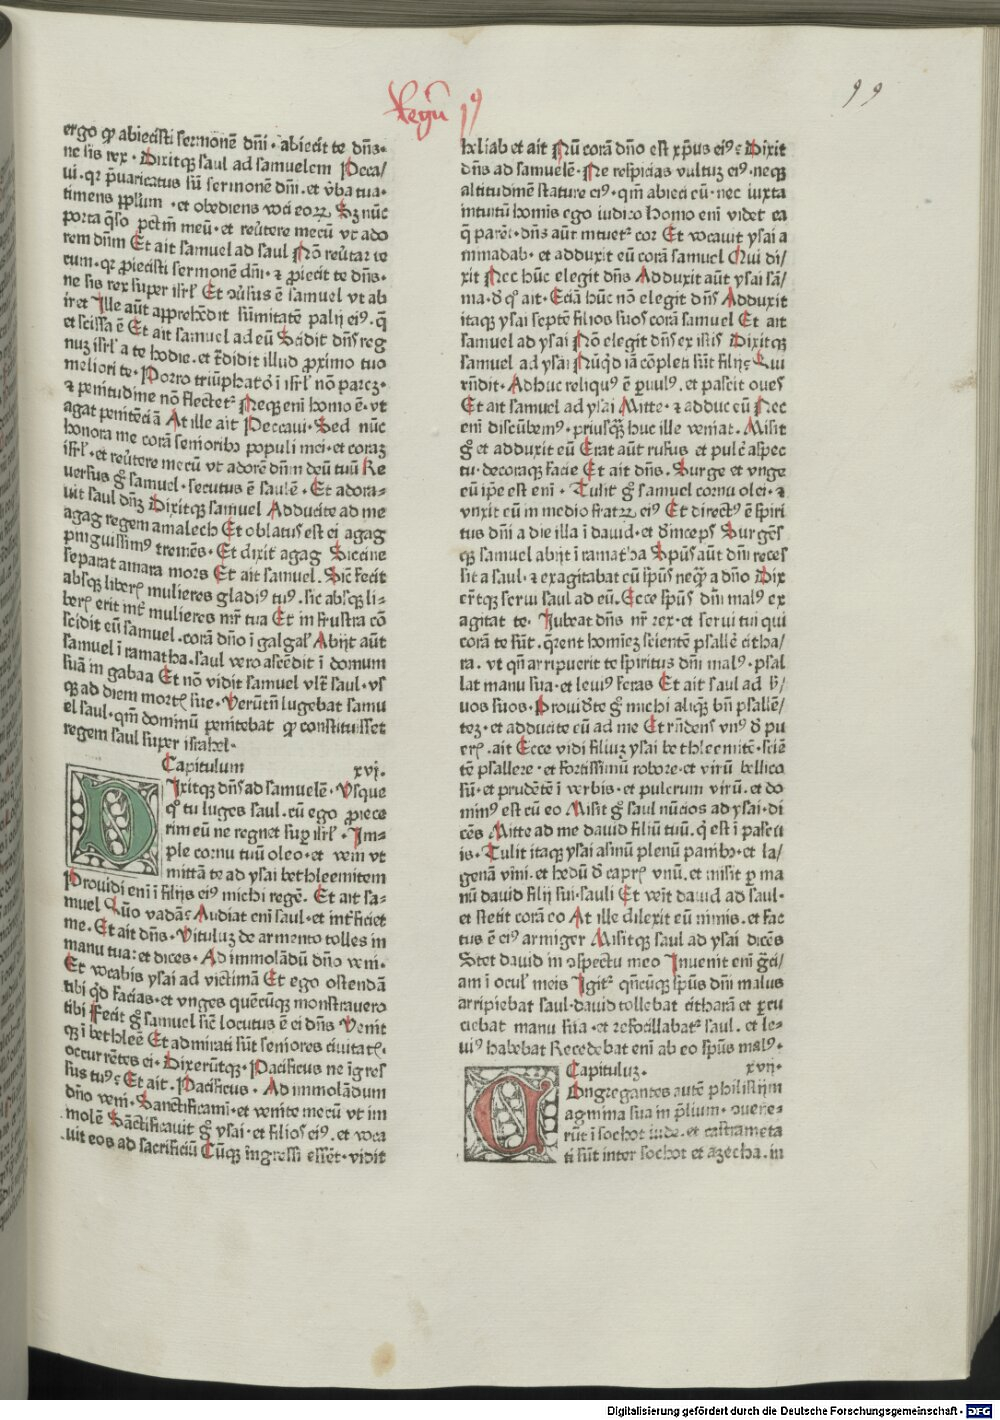 Regũ ꝰ
99
ergo qꝫ abiecisti sermonẽ dñi · abiecit te dñs·
ne sis rex · Dixitqꝫ saul ad samuelem Pecca/
ui · qꝛ p̃uaricatus sũ sermonẽ dñi · et v̾ba tua ·
timens pplum · et obediens voci eoꝝ Sꝫ nũc
porta q̃so pctm̃ meũ · et reu̾tere mecũ vt ado
rem dñm Et ait samuel ad saul Nõ reu̾tar te
cum · qꝛ proiecisti sermonẽ dñi · ꝛ proiecit te dñs·
ne sis rex super isrl̾ Et ꝯu̾sus ẽ samuel vt ab
iret Ille aũt apprehẽdit sũmitatẽ palij eiꝰ · q̃
et scissa ẽ Et ait samuel ad eũ Scidit dñs reg
nuꝫ isrl̾ a te hodie · et t̾didit illud proximo tuo
meliori te · Porro triũphatoꝛ ĩ isrl̾ nõ parcꝫ·
ꝛ penitudine nõ flectetᷣ Neqꝫ eni homo ẽ · vt
agat penitẽciã At ille ait Peccaui · Sed nũc
honora me corã senioribꝫ populi mei · et coraꝫ
isrl̾ · et reu̾tere mecũ vt adorẽ dñm deũ tuũ Re
uersus gᷣ samuel · secutus ẽ saulẽ · Et adora-
uit saul dñꝫ Dixitqꝫ samuel Adducite ad me
agag regem amalech Et oblatus est ei agag
pinguissimꝰ tremẽs · Et dixit agag Siccine
separat amara mors Et ait samuel · Sic̾ fecit
absqꝫ liberꝭ mulieres gladiꝰ tuꝰ · sic absqꝫ li-
berꝭ erit int̾ mulieres mr̃ tua Et in frustra cõ
scidit eũ samuel · corã dño ĩ galgal̾ Abijt aũt
samuel ĩ ramatha · saul vero ascẽdit ĩ domum
suã in gabaa Et nõ vidit samuel vlt̾ saul · vs
qꝫ ad diem mortꝭ sue · Verũtñ lugebat samu
el saul · qm̃ dominũ penitebat qꝫ constituisset
regem saul super israhel·
Capitulum xvj·
DIxitqꝫ dñs ad samuelẽ · Vsque
q̊ tu luges saul · cũ ego proiece
rim eũ ne regnet sup̾ isrl̾ · Im-
ple cornu tuũ oleo · et veni vt
mittã te ad ysai bethleemitem
Prouidi eni ĩ filijs eiꝰ michi regẽ · Et ait sa-
muel Quo vadã? Audiat eni saul · et int̾ficiet
me · Et ait dñs · Vituluꝫ de armento tolles in
manu tua : et dices · Ad immolãdũ dño veni ·
Et vocabis ysai ad victimã Et ego ostendã
tibi qd̾ facias · et vnges quẽcũqꝫ monstrauero
tibi Fecit gᷣ samuel sic̾ locutus ẽ ei dñs Venit
qꝫ ĩ bethleẽ Et admirati sũt seniores ciuitatꝭ ·
occurrẽtes ei · Dixerũtqꝫ · Pacificus ne ĩgres
sus tuꝰ? Et ait · Pacificus · Ad immolãdum
dño veni · Sanctificami · et venite mecũ vt im
molẽ Sãctificauit gᷣ ysai · et filios eiꝰ · et voca
uit eos ad sacrificiũ Cũqꝫ ingressi essẽt · vidit
heliab et ait Nũ corã dño est xp̃us eiꝰ? Dixit
dñs ad samuelẽ · Ne respicias vultuꝫ eiꝰ · neqꝫ
altitudinẽ stature eiꝰ · qm̃ abieci eũ · nec iuxta
intuitũ homis ego iudico Homo eni videt ea
q̃ parẽt · dñs aũt intuetᷣ cor Et vocauit ysai a
minadab · et adduxit eũ corã samuel Qui di/
xit Nec hũc elegit dñs Adduxit aũt ysai sã/
ma · d̾ q̊ ait · Eciã hũc nõ elegit dñs Adduxit
itaqꝫ ysai septẽ filios suos corã samuel Et ait
samuel ad ysai Nõ elegit dñs ex istis Dixitqꝫ
samuel ad ysai Nũqd̾ iã cõpleti sũt filij? Qui
rñdit · Adhuc reliquꝰ ẽ p̱uulꝰ · et pascit oues
Et ait samuel ad ysai Mitte · ꝛ adduc eũ Nec
eni discũbemꝰ · priusqꝫ huc ille veniat · Misit
gᷣ et adduxit eũ Erat aũt rufus et pulc̾ aspec
tu · decoraqꝫ facie Et ait dñs · Surge et vnge
eũ ipẽ est eni · Tulit gᷣ samuel cornu olei · ꝛ
vnxit eũ in medio fratꝝ eiꝰ Et directꝰ ẽ spiri
tus dñi a die illa ĩ dauid · et d̾inceps Surgẽs
qꝫ samuel abijt ĩ ramatha Spũs aũt dñi reces
sit a saul · ꝛ exagitabat eũ spũs neqꝫ̃ a dño Dix
er̃tqꝫ serui saul ad eũ · Ecce spũs dñi malꝰ ex
agitat te · Iubeat dñs nr̃ rex · et serui tui qui
corã te sũt · q̃rent hominẽ scientẽ psallẽ citha/
ra · vt qñ arripuerit te spiritus dñi malꝰ · psal
lat manu sua · et leuiꝰ feras Et ait saul ad s̾/
uos suos · Prouid̾te gᷣ michi aliqꝫ bñ psallẽ/
teꝫ · et adducite eũ ad me Et rñdens vnꝰ d̾ pu
erꝭ · ait Ecce vidi filiuꝫ ysai bethleemitẽ · sciẽ
tẽ psallere · et fortissimũ robore · et virũ bellico
sũ · et prudẽtẽ ĩ verbis · et pulcrum virũ · et do
minꝰ est cũ eo Misit gᷣ saul nũcios ad ysai · di
cẽs Mitte ad me dauid filiũ tuũ · q̇ est ĩ pascu
is · Tulit itaqꝫ ysai asinũ plenũ panibꝫ · et la/
genã vini · et hedũ d̾ caprꝭ vnũ · et misit p̱ ma
nũ dauid filij sui · sauli Et venit dauid ad saul ·
et stetit corã eo At ille dilexit eũ nimis · et fac
tus ẽ eiꝰ armiger Misitqꝫ saul ad ysai dicẽs
Stet dauid in ꝯspectu meo Inuenit eni grãci/
am ĩ oculꝭ meis Igitᷣ qñcũqꝫ spũs dñi malus
arripiebat saul · dauid tollebat citharã et p̱cu
ciebat manu sua · et refocillabatᷣ saul · et le-
uiꝰ habebat Recedebat eni ab eo spũs malꝰ ·
Capituluꝫ · xvij·
COngregantes autẽ philistijm
agmina sua in p̃lium · ꝯuene-
rũt ĩ sochot iude · et castrameta
ti sũt inter sochot et azecha · in
Digitalisierung gefördert durch die Deutsche Forschungsgemeinschaft - DFG